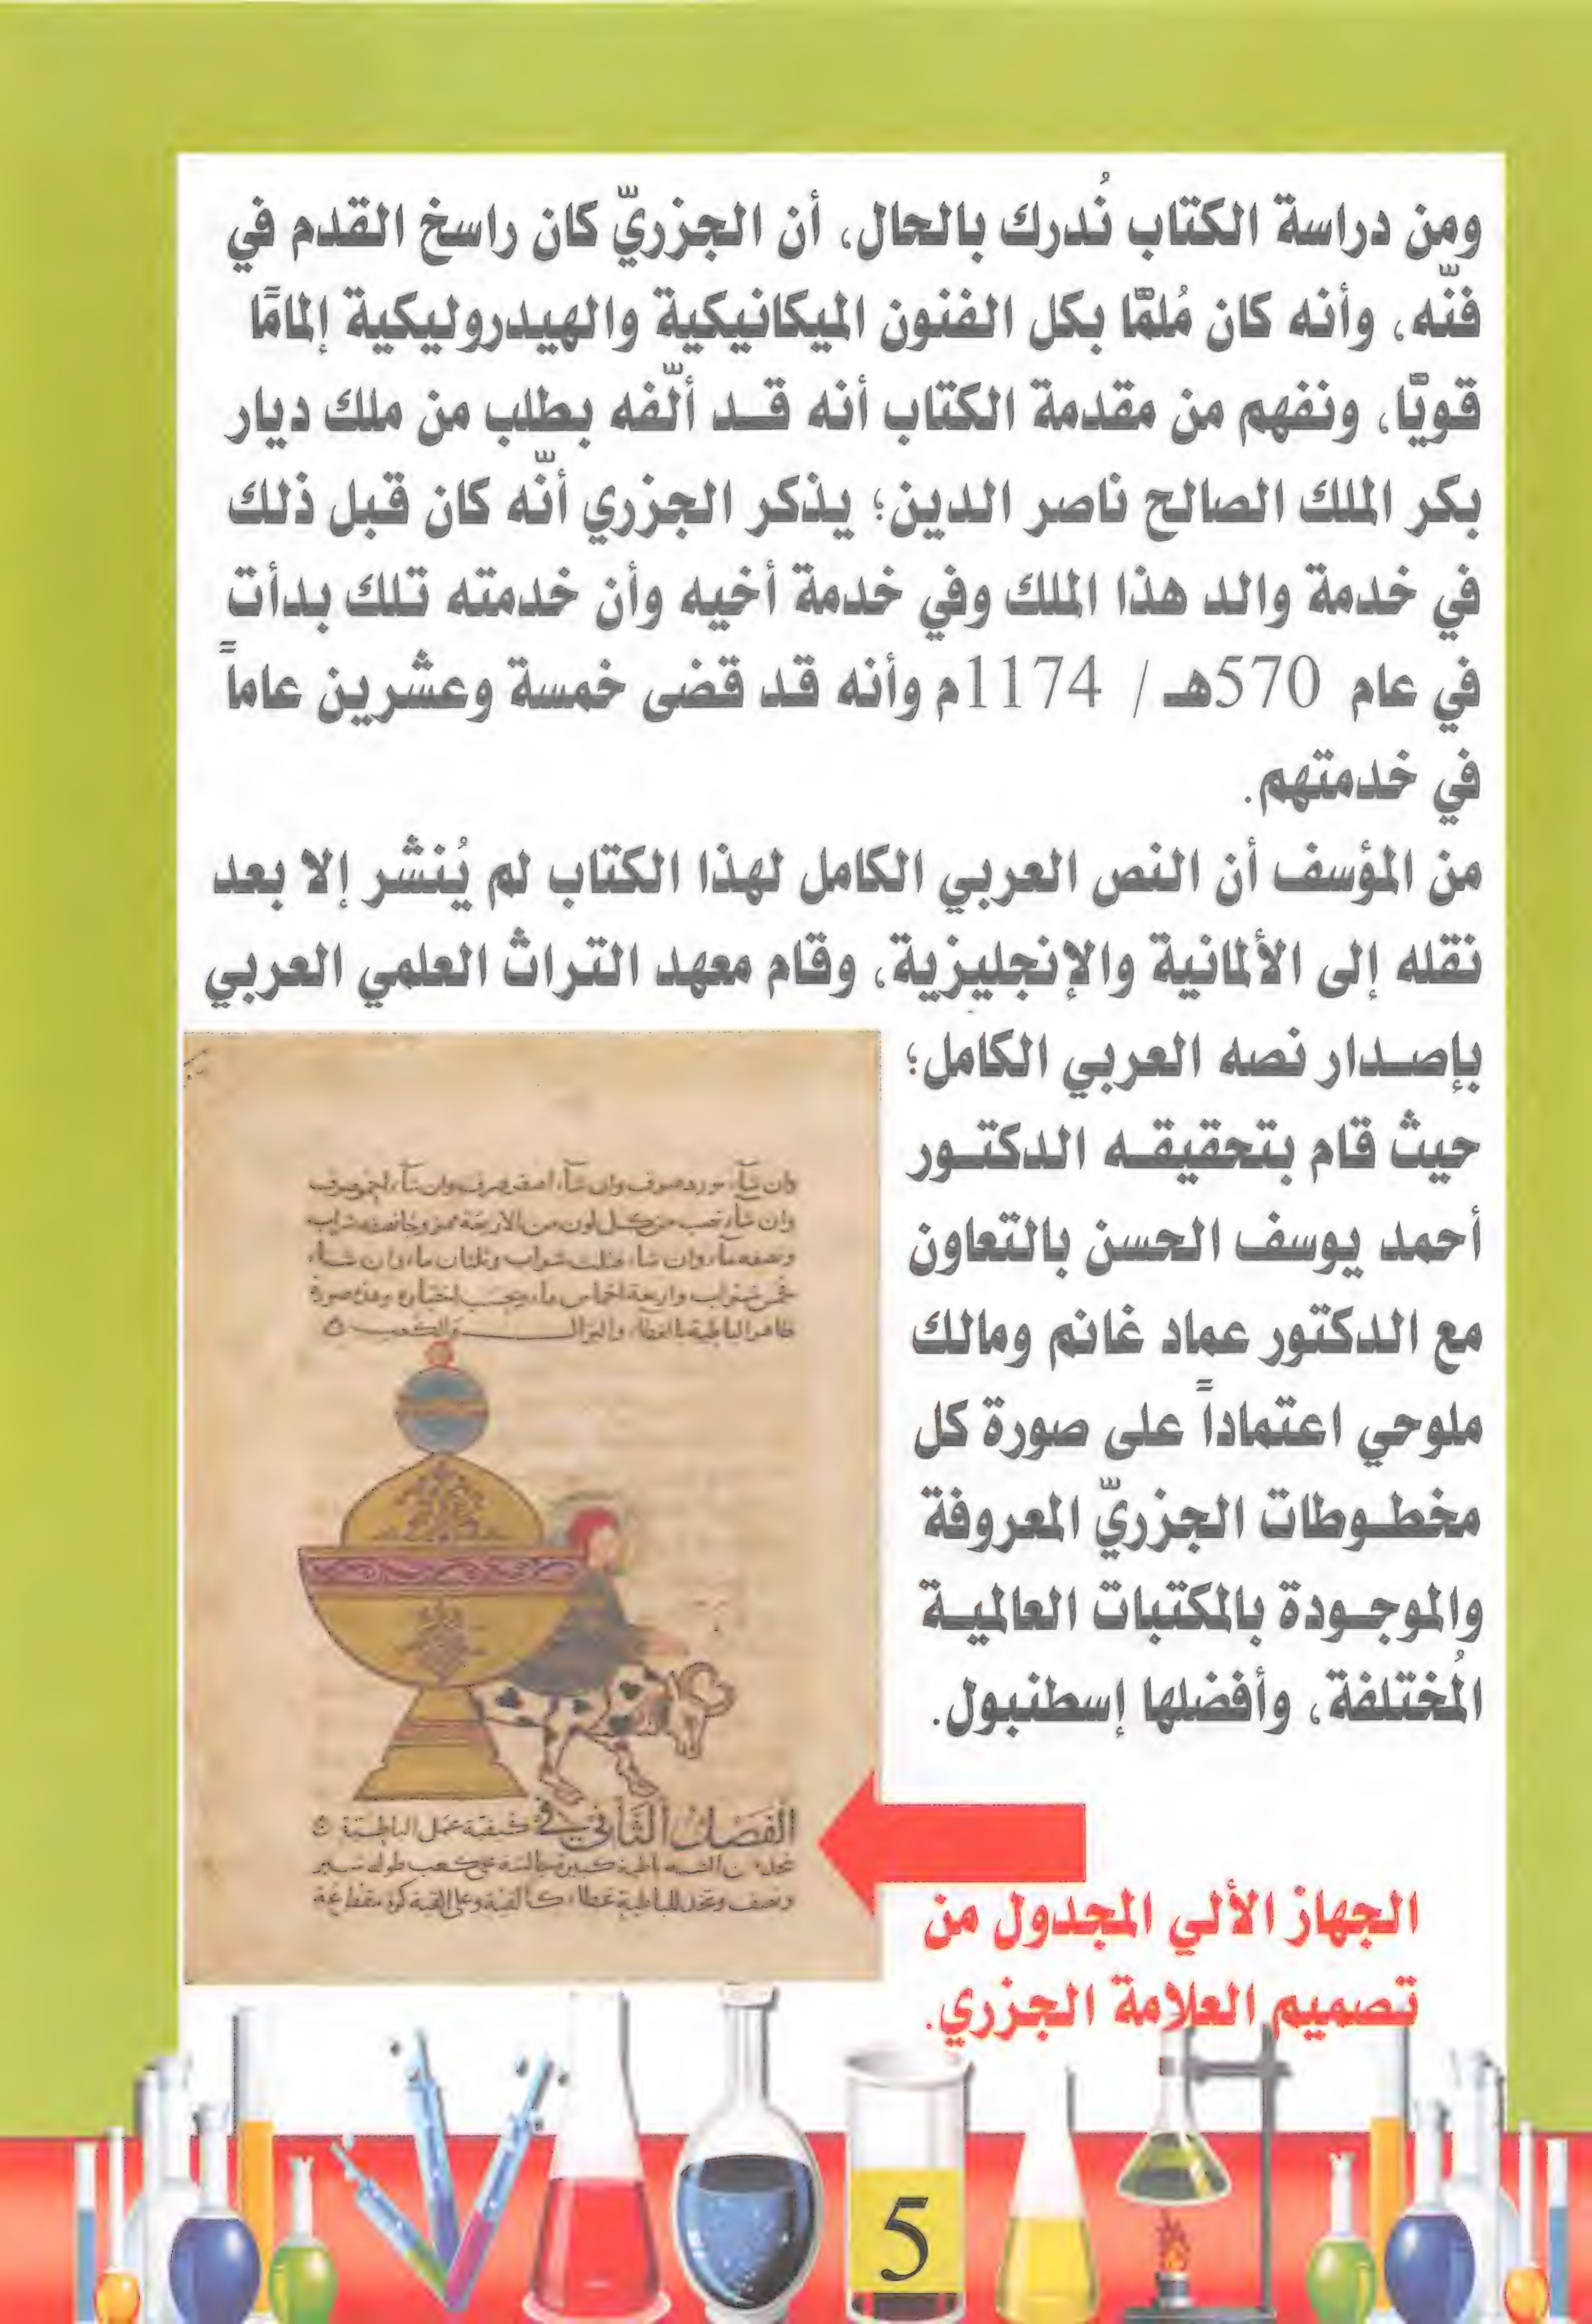 ومن دراسة الكتاب نُدرك بالحال، أن الجزريّ كان راسخ القدم في
فنّه، وأنه كان مُلمًّا بكل الفنون الميكانيكية والهيدروليكية إلمامًا
قويًّا، ونفهم من مقدمة الكتاب أنه قد ألّفه بطلب من ملك ديار
بكر الملك الصالح ناصر الدين؛ يذكر الجزري أنّه كان قبل ذلك
في خدمة والد هذا الملك وفي خدمة أخيه وأن خدمته تلك بدأت
في عام 570هـ / 1174م وأنه قد قضى خمسة وعشرين عاماً
في خدمتهم.
من المؤسف أن النص العربي الكامل لهذا الكتاب لم يُنشر إلا بعد
نقله إلى الألمانية والإنجليزية، وقام معهد التراث العلمي العربي
بإصدار نصه العربي الكامل؛
حيث قام بتحقيقه الدكتور
أحمد يوسف الحسن بالتعاون
مع الدكتور عماد غانم ومالك
ملوحي اعتماداً على صورة كل
مخطوطات الجزريّ المعروفة
والموجودة بالمكتبات العالمية
المُختلفة، وأفضلها إسطنبول.
الفصل الثاني في كيفية عمل الباطية
الجهاز الألي المجدول من
تصميم العلامة الجزري.
5